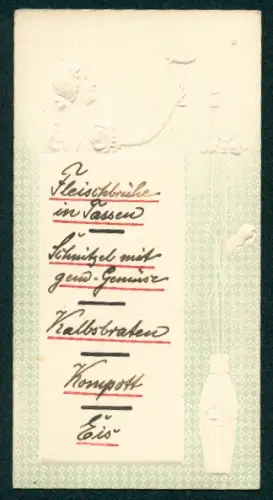 Fleischbrühe
in Tassen
Schnitzel mit
gem. Gemüse
Kalbsbraten
Kompott
Eis